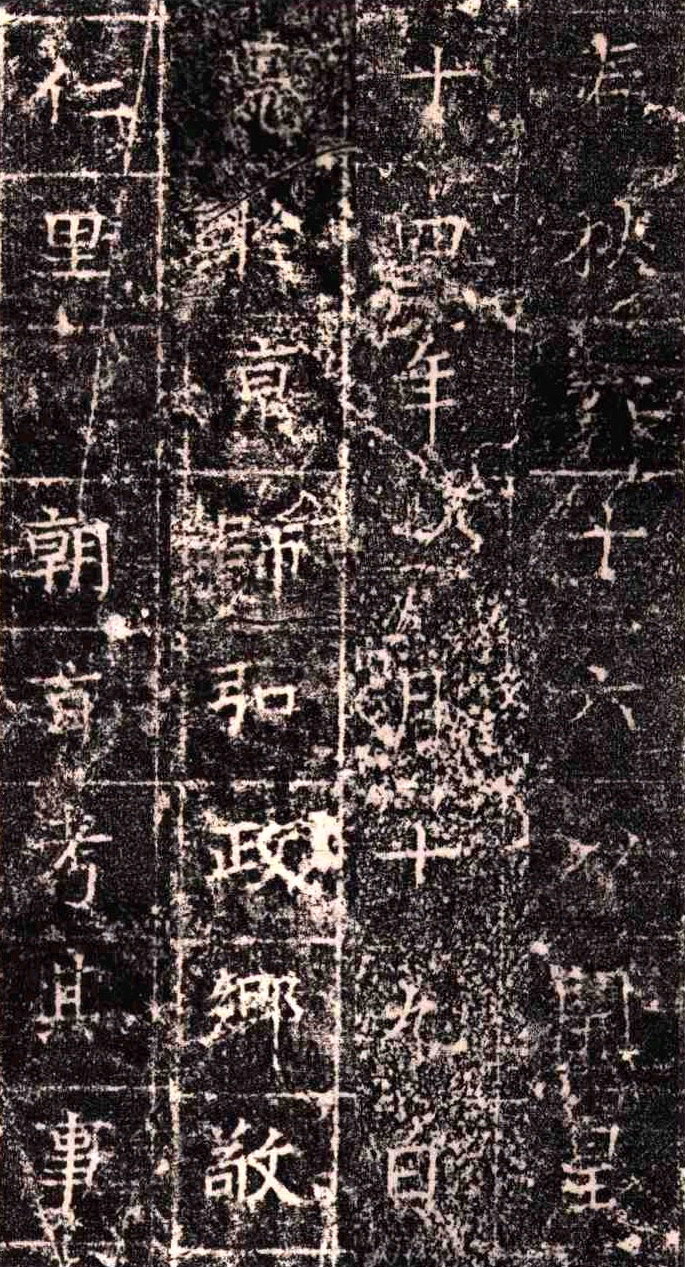 春秋六十六以開皇
十四年月十九日
薨於京師弘政鄉敬
仁里朝旨考其事